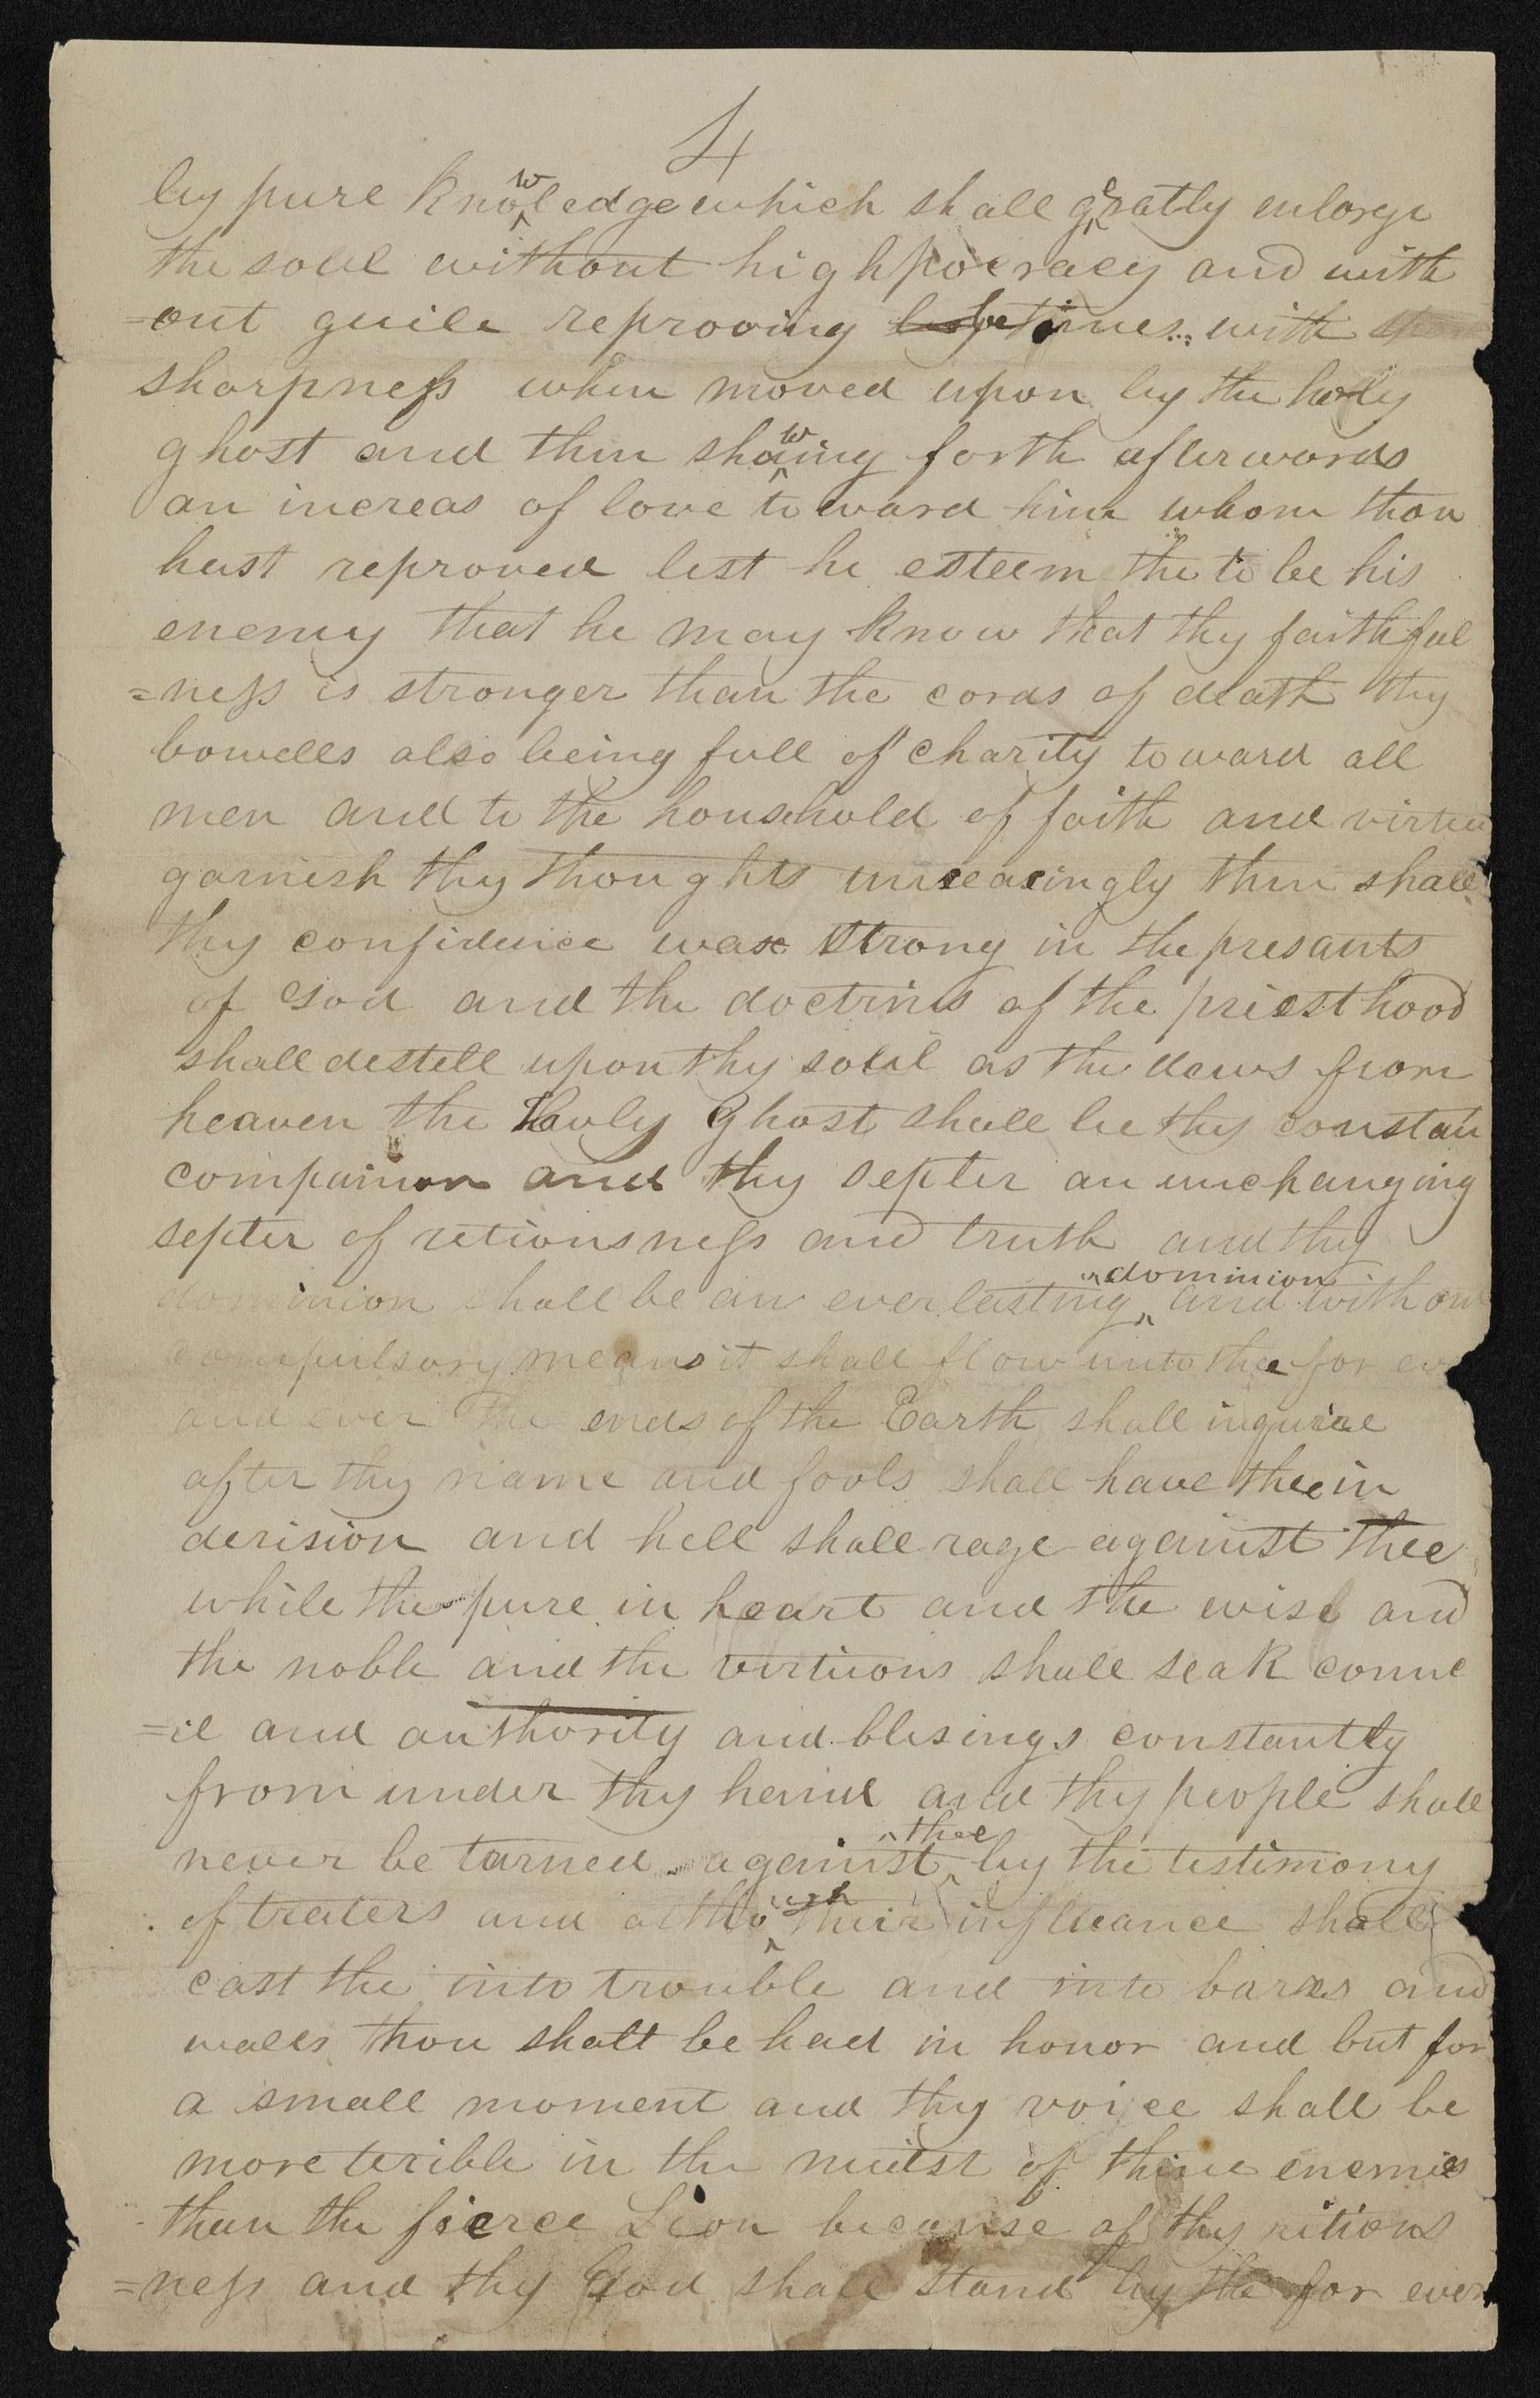 4
by pure knowledge which shall greatly enlarge
the soul without highpocracy and with
=out guile reproving betimes with
sharpness when moved upon by the holy
ghost and then shawing forth afterwords
an increas of love toward him whom thou
hast reproved lest he esteem the to be his
enemy that he may know that thy faithful
=ness is stronger than the cords of death thy
bowells also being full of charity toward all
men and to the household of faith and virtue
garnish thy thoughts unceacingly then shall
thy confidence wax strong in the presants
of God and the doctrins of the priesthood
shall destell upon thy soul as the dews from
heaven the Holy Ghost shall be thy constan
companion and thy septer an unchanging
septer of retiousness and truth and thy
dominion shall be an everlasting dominion and without
compulsory means it shall flow unto thee for ev
and ever The ends of the Earth shall inquire
after thy name and fools shall have thee in
derision and hell shall rage against thee
while the pure in heart and the wise and
the noble and the virtuous shall seak counc
=il and authority and blesings constantly
from under thy hand and thy people shall
never be turned against thee by the testimony
of traters and although their influance shall
cast the into trouble and into bars and
walls thou shalt be had in honor and but for
a small moment and thy voice shall be
more terible in the midst of thine enemies
than the fierce Lion because of thy ritious
=ness and thy God shall stand by the for ever